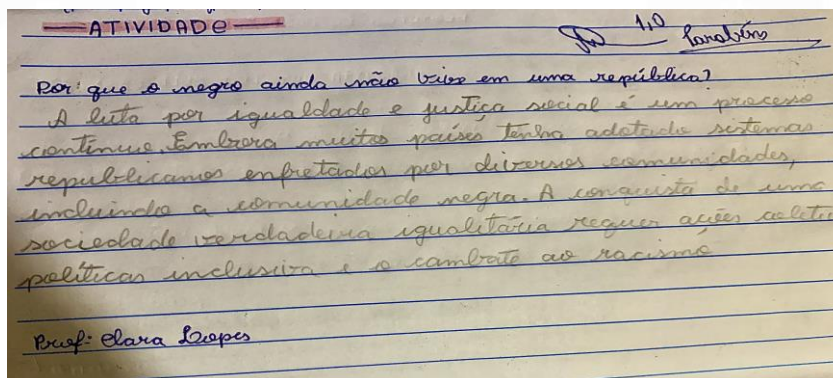 ATIVIDADE
1,0 Parabéns
Por que o negro ainda não vive em uma república?
A luta por igualdade e justiça social é um processo
contínuo. Embora muitos países tenha adotado sistemas
republicanos enfretados por diversos comunidades,
incluindo a comunidade negra. A conquista de uma
sociedade verdadeira igualitária requer ações coletiv
políticas inclusiva e o combate ao racismo
Prof: Clara Lopes